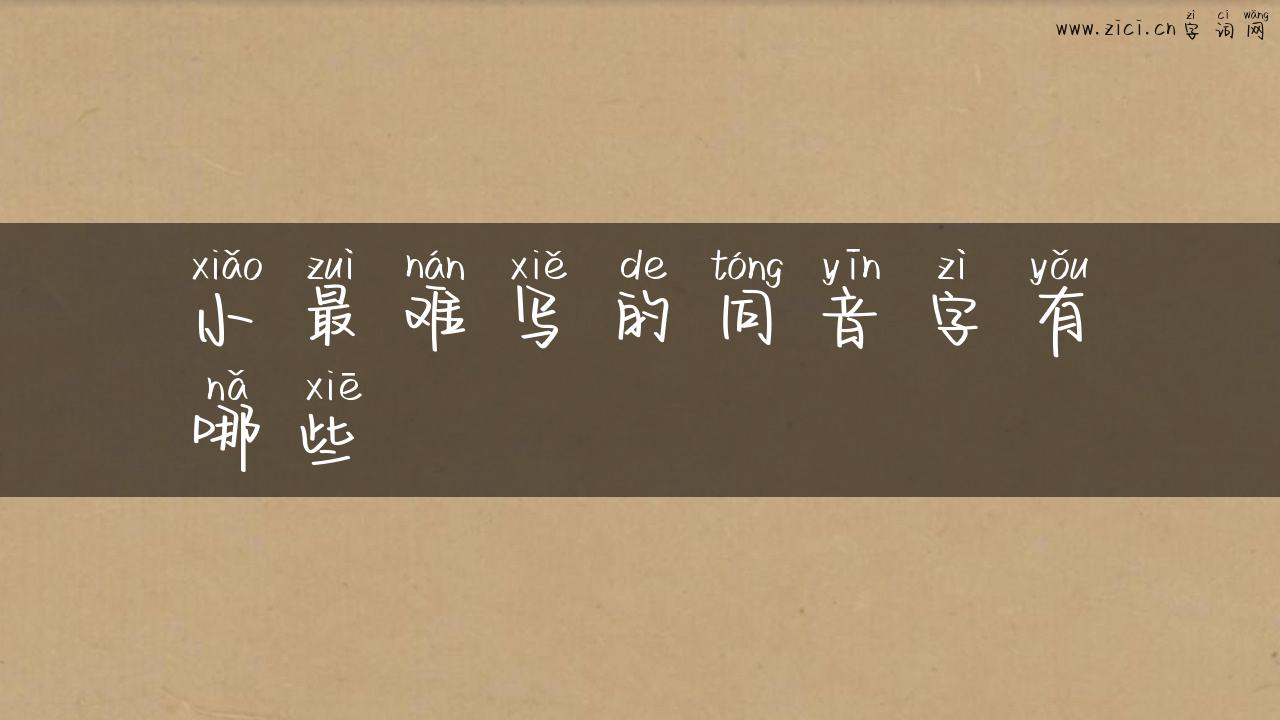 zì cí wǎng
www.zici.cn 字 词 网
xiǎo zuì nán xiě de tóng yīn zì yǒu
小 最 难 写 的 同 音 字 有
nǎ xiē
哪 些